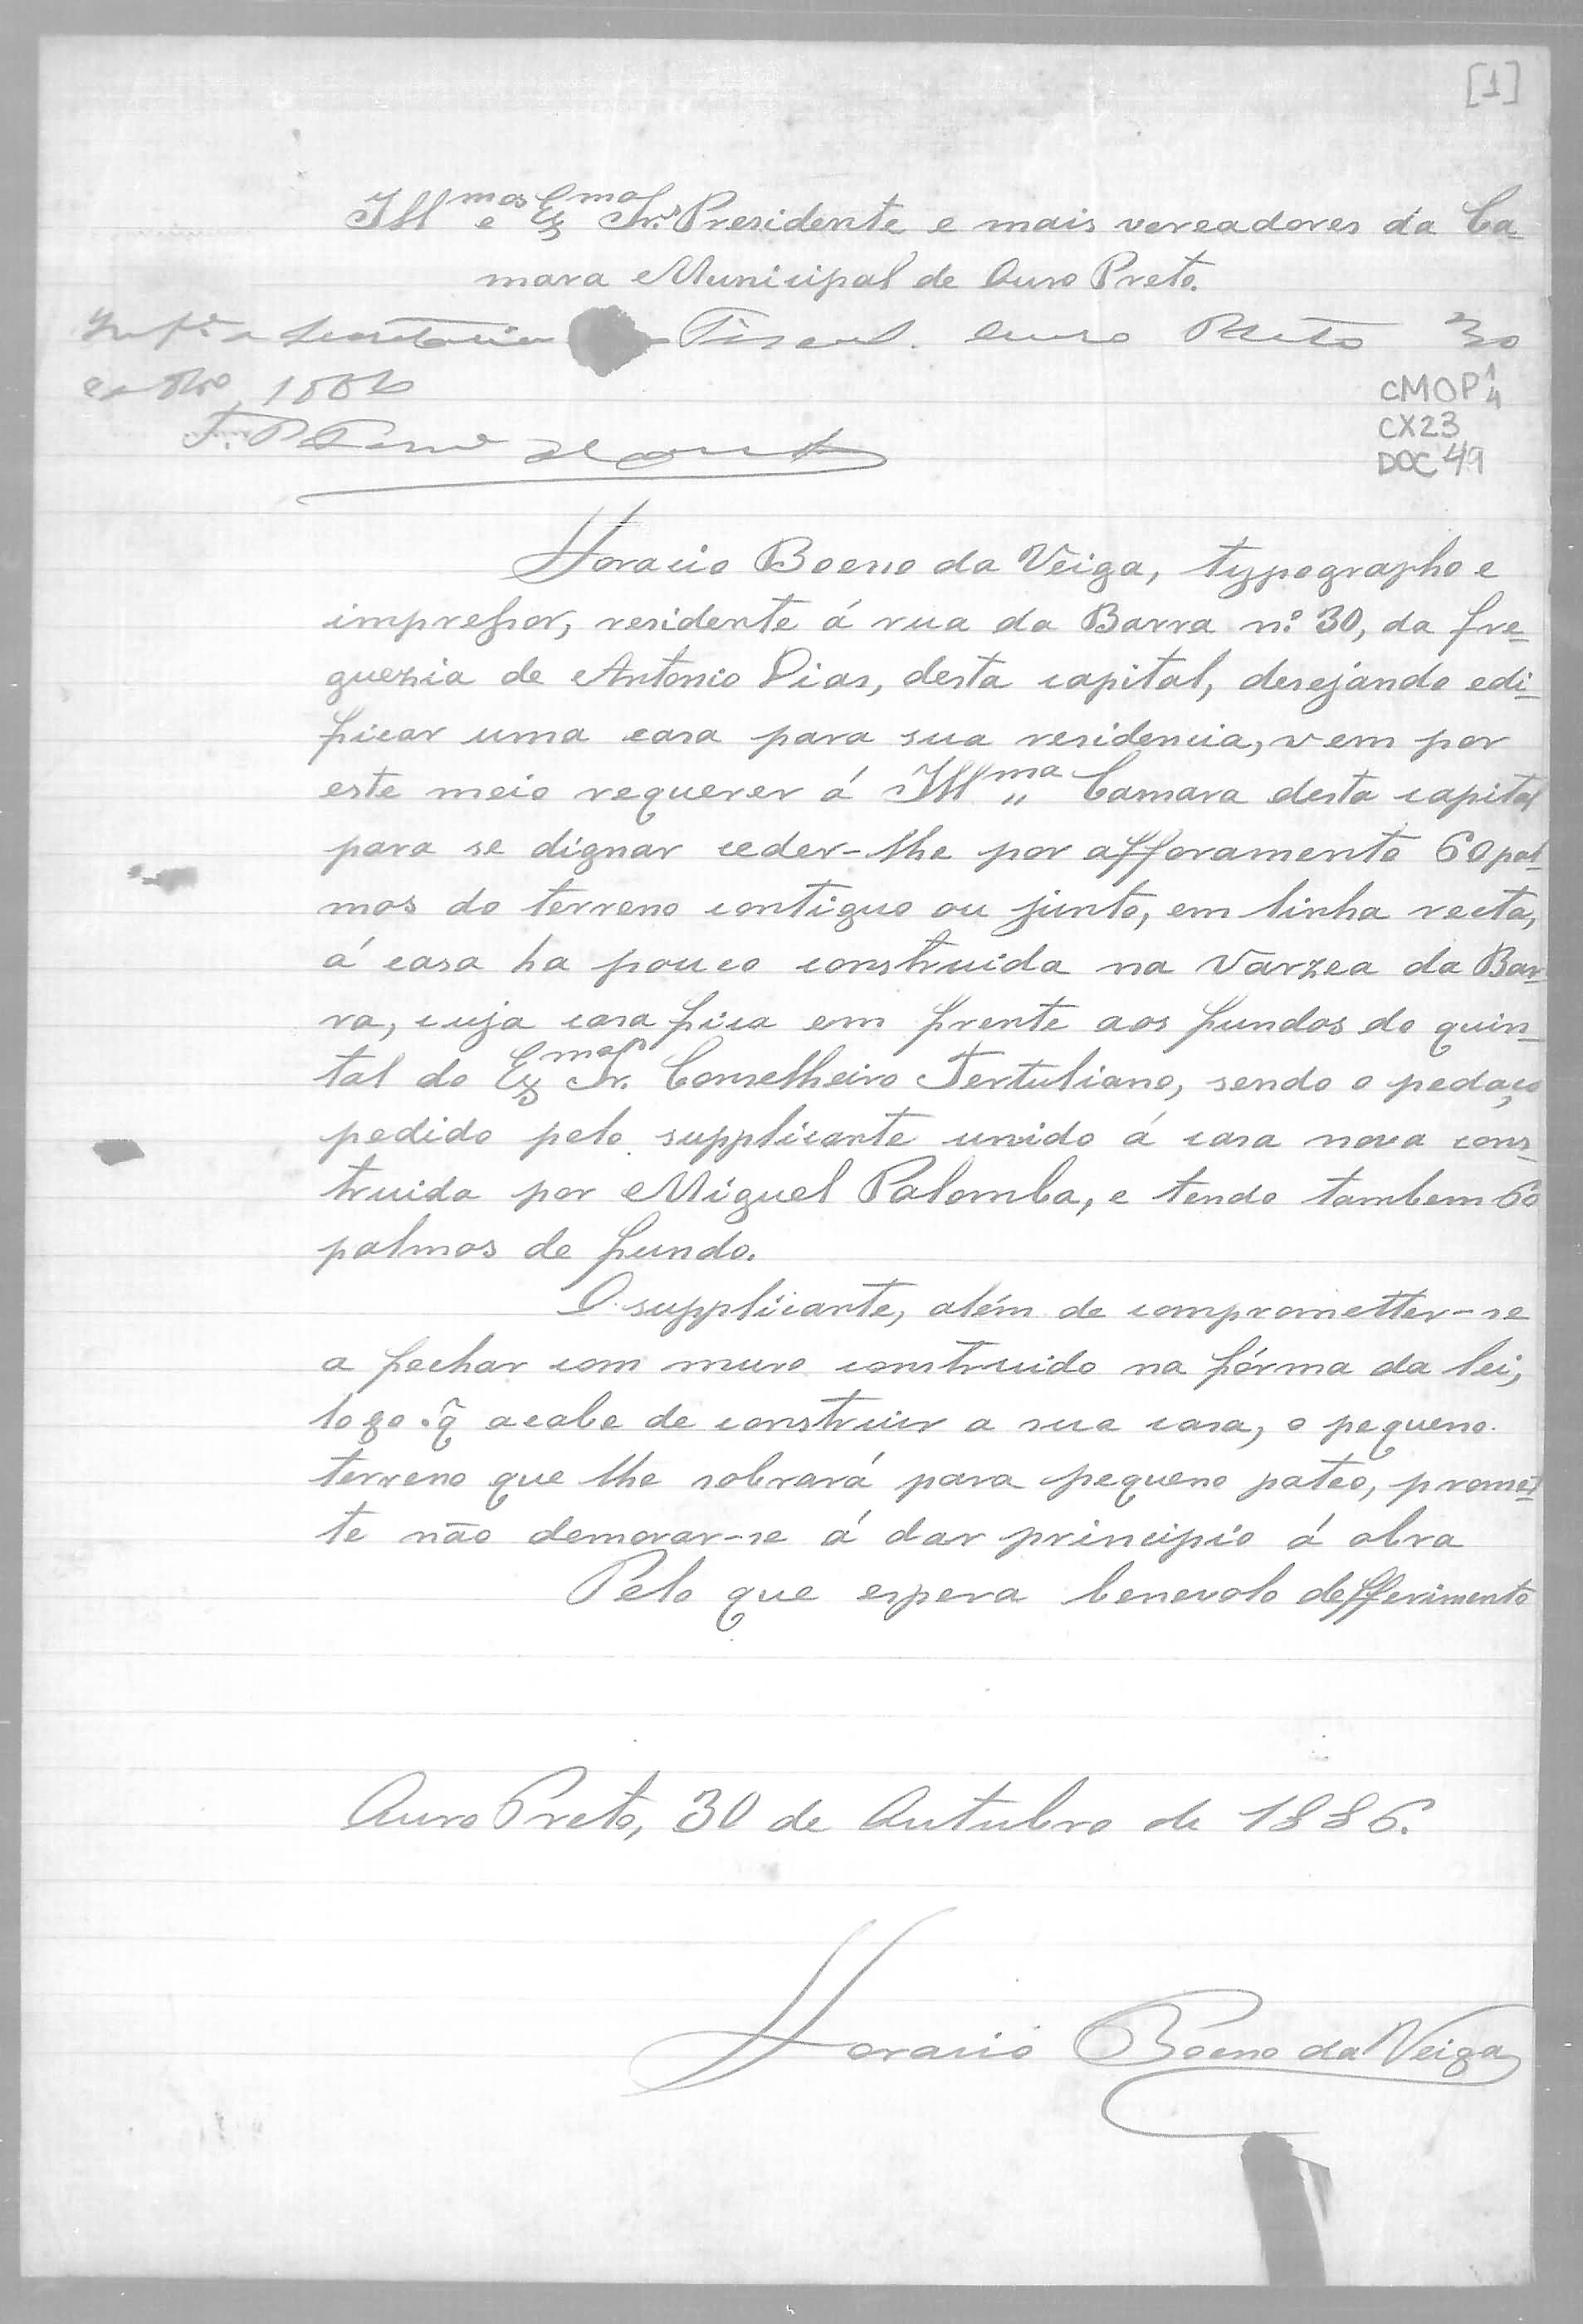 [1]
Ill^mos e Ex^mos Srs. Presidente e mais vereadores da Ca-
mara Municipal de Ouro Preto.
Secretaria Fiscal. Ouro Preto 30
1886
CMOP 1/4
CX23
DOC 49
Horacio Boeno da Veiga, typographo e
impressor, residente á rua da Barra n.º 30, da fre-
guezia de Antonio Dias, desta capital, desejando edi-
ficar uma casa para sua residencia, vem por
este meio requerer á Ill^ma Camara desta capital
para se dignar ceder-lhe por afforamento 60 pal-
mos do terreno contiguo ou junto, em linha recta,
á casa ha pouco construida na Varzea da Bar-
ra, cuja casa fica em frente aos fundos do quin-
tal do Ex^mo Sr. Conselheiro Tertuliano, sendo o pedaço
pedido pelo supplicante unido á casa nova cons-
truida por Miguel Palomba, e tendo tambem 60
palmos de fundo.
O supplicante, além de comprometter-se
a fechar com muro construido na fórma da lei,
logo q̃ acabe de construir a sua casa, o pequeno
terreno que lhe sobrará para pequeno pateo, promet-
te não demorar-se á dar principio á obra
Pelo que espera benevolo defferimento
Ouro Preto, 30 de Outubro de 1886.
Horacio Boeno da Veiga